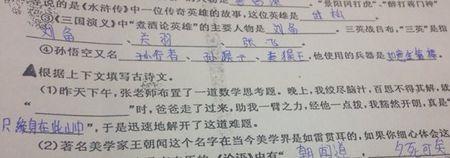 说的是《水浒传》中一位传奇英雄的故事,这位英雄是 武松
③《三国演义》中"煮酒论英雄"的主要人物是 刘备
刘备、 关羽 张飞 三英战吕布,"三英"是指
④孙悟空又名 孙行者、孙猴子、美猴王,他使用的兵器是如意金箍棒
▲根据上下文填写古诗文。
(1)昨天下午,张老师布置了一道数学思考题。晚上,我绞尽脑汁,百思不得其解,就
"时,爸爸走了过来,助我一臂之力,经他一点拨,我豁然开朗,真是"
只缘身在此山中",于是迅速地解开了这道难题。
(2)著名美学家王朝闻这个名字在当今美学界是如雷贯耳的,如果你细心体会这
《论语》中有" 朝闻道, 夕死可矣